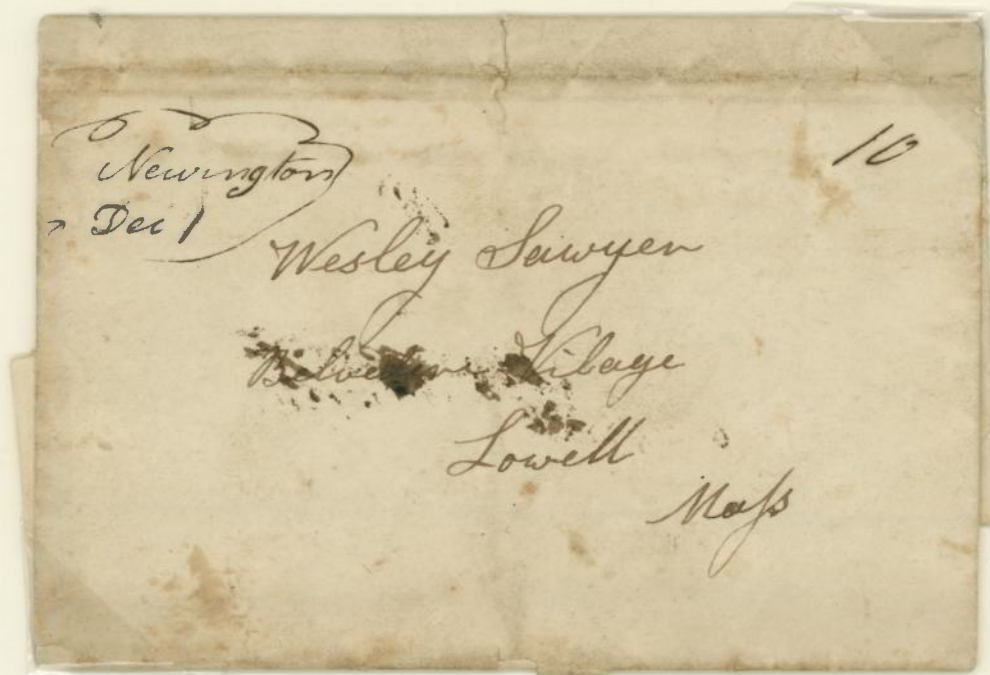 Newington
Dec 1
10
Wesley Sawyer
Belvedere Vilage
Lowell
Mass